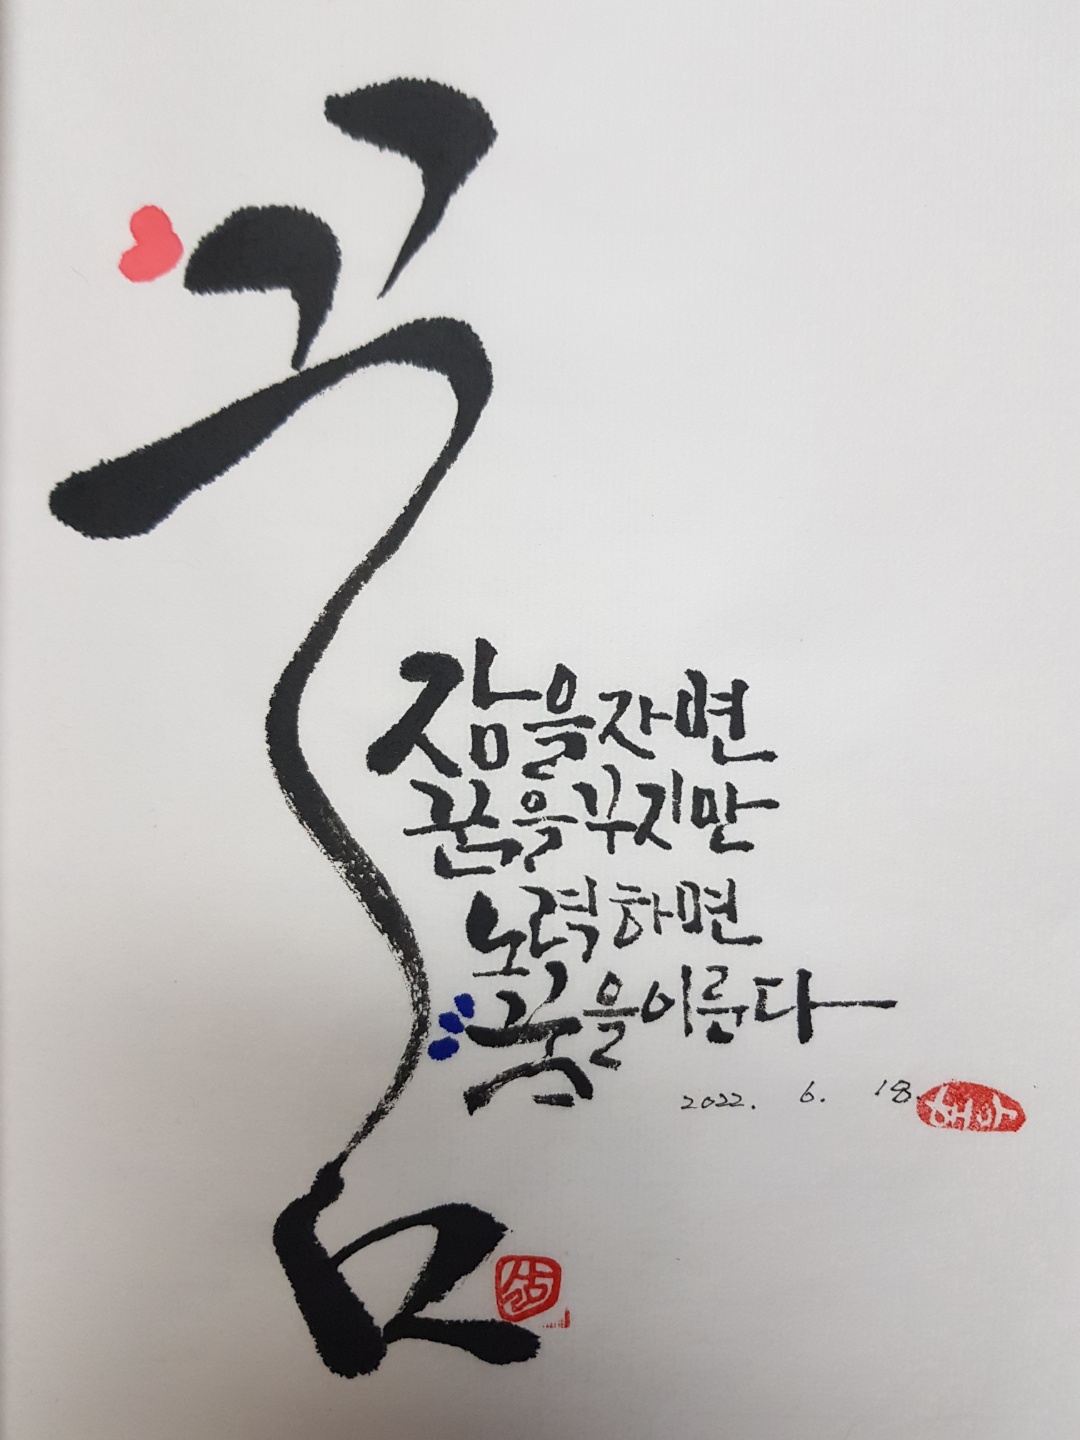 꿈
잠을자면
꿈을꾸지만
노력하면
꿈을이룬다
2022. 6. 18.